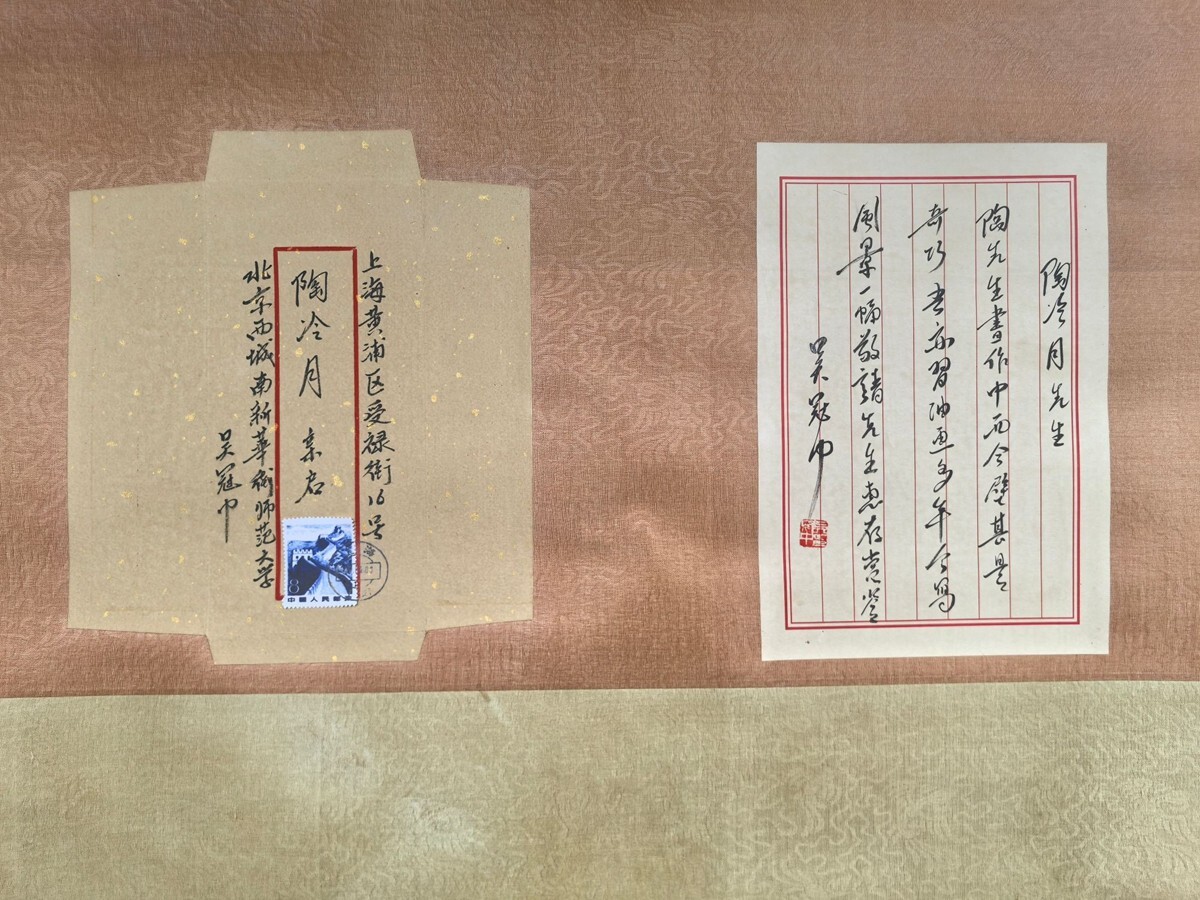 陶冷月先生
陶先生書作中西合璧甚是
奇巧吾亦習油画多年今寫
風景一幅敬請先生惠存赏鉴
吴冠中
上海黄浦区受禄街16号
陶冷月 亲启
北京西城南新華街师范大学
吴冠中
8
中國人民郵政